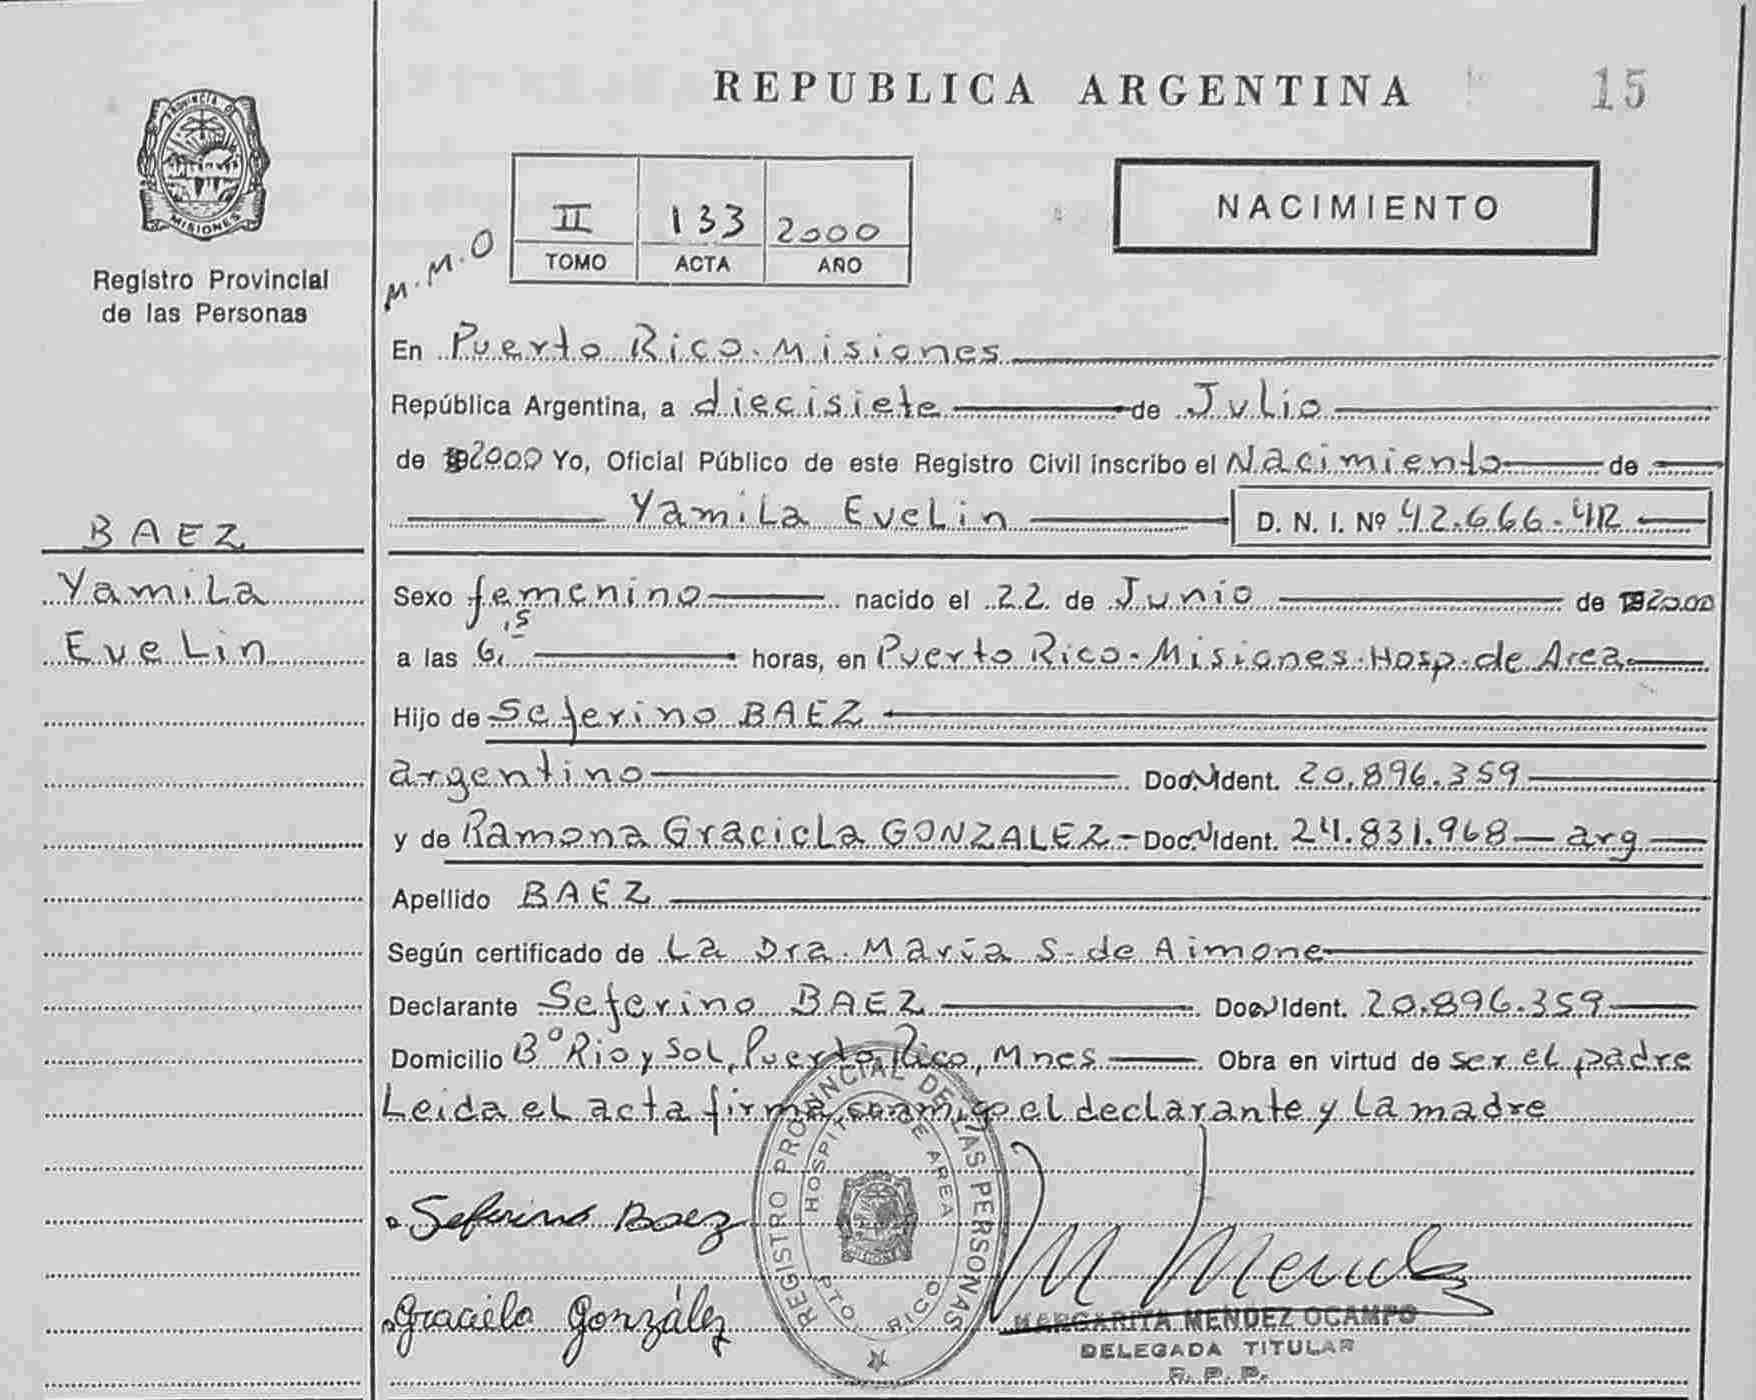 REPUBLICA ARGENTINA
15
PROVINCIA DE
MISIONES
Registro Provincial
de las Personas
M.M.O
II 133 2000
TOMO ACTA AÑO
NACIMIENTO
En Puerto Rico. Misiones
República Argentina, a diecisiete de Julio
de 2000 Yo, Oficial Público de este Registro Civil inscribo el Nacimiento de
Yamila Evelin D. N. I. Nº 42.666.412
BAEZ
Yamila
Evelin
Sexo femenino nacido el 22 de Junio de 2000
a las 6,15 horas, en Puerto Rico-Misiones-Hosp. de Area
Hijo de Seferino BAEZ
argentino Doc. Ident. 20.896.359
y de Ramona Graciela GONZALEZ - Doc. Ident. 24.831.968 — arg
Apellido BAEZ
Según certificado de La Dra. María S. de Aimone
Declarante Seferino BAEZ Doc. Ident. 20.896.359
Domicilio Bº Rio y Sol, Puerto Rico, Mnes Obra en virtud de ser el padre
Leida el acta firma conmigo el declarante y la madre
Seferino Baez
Graciela González
REGISTRO PROVINCIAL DE LAS PERSONAS
HOSPITAL DE AREA
PTO. RICO
M Mendez
MARGARITA MENDEZ OCAMPO
DELEGADA TITULAR
R. P. P.